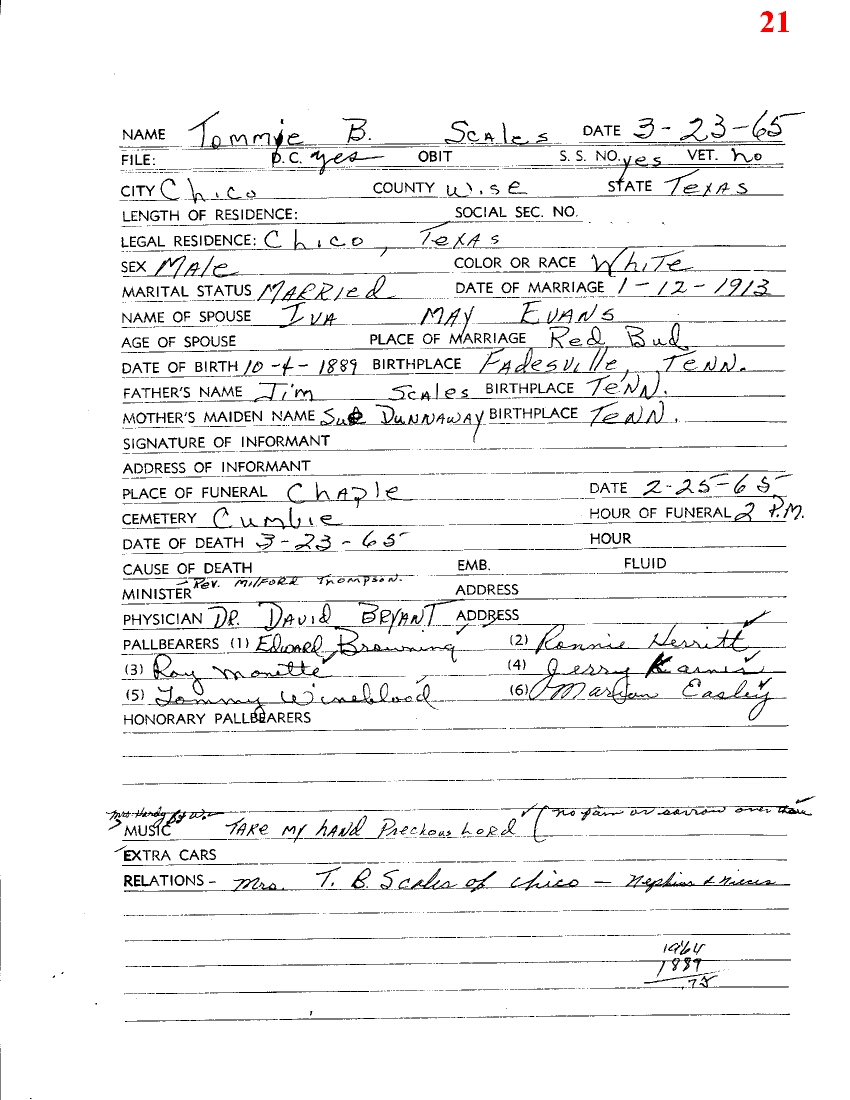 21
NAME Tommie B. Scales DATE 3-23-65
FILE: D.C. yes OBIT S. S. NO. yes VET. no
CITY Chico COUNTY Wise STATE Texas
LENGTH OF RESIDENCE: SOCIAL SEC. NO.
LEGAL RESIDENCE: Chico, Texas
SEX Male COLOR OR RACE White
MARITAL STATUS Married DATE OF MARRIAGE 1-12-1913
NAME OF SPOUSE Iva May Evans
AGE OF SPOUSE PLACE OF MARRIAGE Red Bud
DATE OF BIRTH 10-4-1889 BIRTHPLACE Fadesville, Tenn.
FATHER'S NAME Jim Scales BIRTHPLACE Tenn.
MOTHER'S MAIDEN NAME Sue Dunnaway BIRTHPLACE Tenn.
SIGNATURE OF INFORMANT
ADDRESS OF INFORMANT
PLACE OF FUNERAL Chaple DATE 2-25-65
CEMETERY Cumbie HOUR OF FUNERAL 2 P.M.
DATE OF DEATH 3-23-65 HOUR
CAUSE OF DEATH EMB. FLUID
MINISTER Rev. Milford Thompson. ADDRESS
PHYSICIAN Dr. David Bryant ADDRESS
PALLBEARERS (1) Edward Browning (2) Ronnie Herritt
(3) Ray Monette (4) Jerry Karnes
(5) Tommy Wineblood (6) Marion Easley
HONORARY PALLBEARERS
Mrs Hardy no pain or sorrow over there
MUSIC Take my hand Preckous Lord
EXTRA CARS
RELATIONS - Mrs. T. B. Scales of Chico - Nephius & Nieces
1964
1889
75